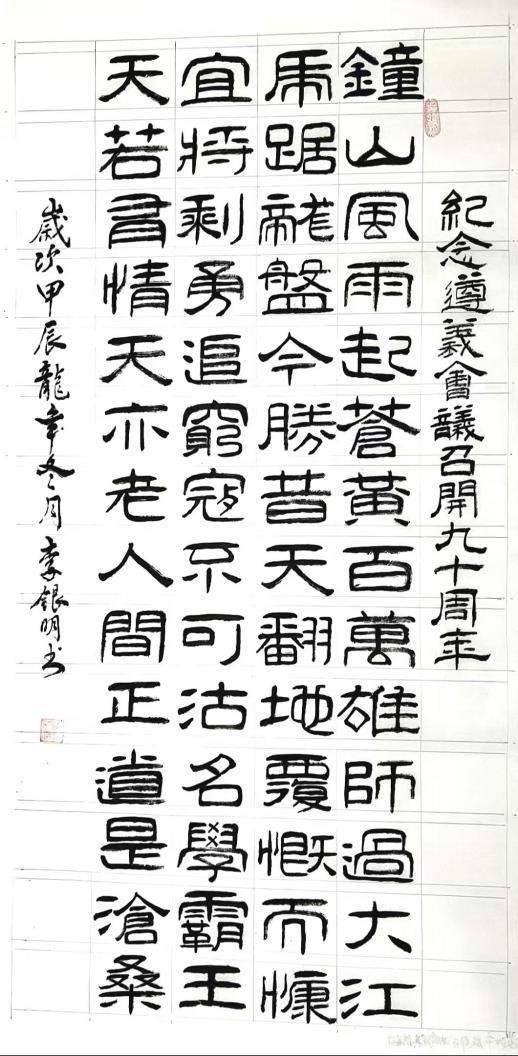 紀念遵義會議召開九十周年
鐘山風雨起蒼黃百萬雄師過大江
虎踞龍盤今勝昔天翻地覆慨而慷
宜將剩勇追窮寇不可沽名學霸王
天若有情天亦老人間正道是滄桑
歲次甲辰龍年冬月李銀明书